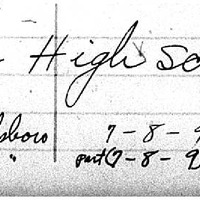 High Sc
sboro 7 - 8 - 9
" part (7 - 8 - 9